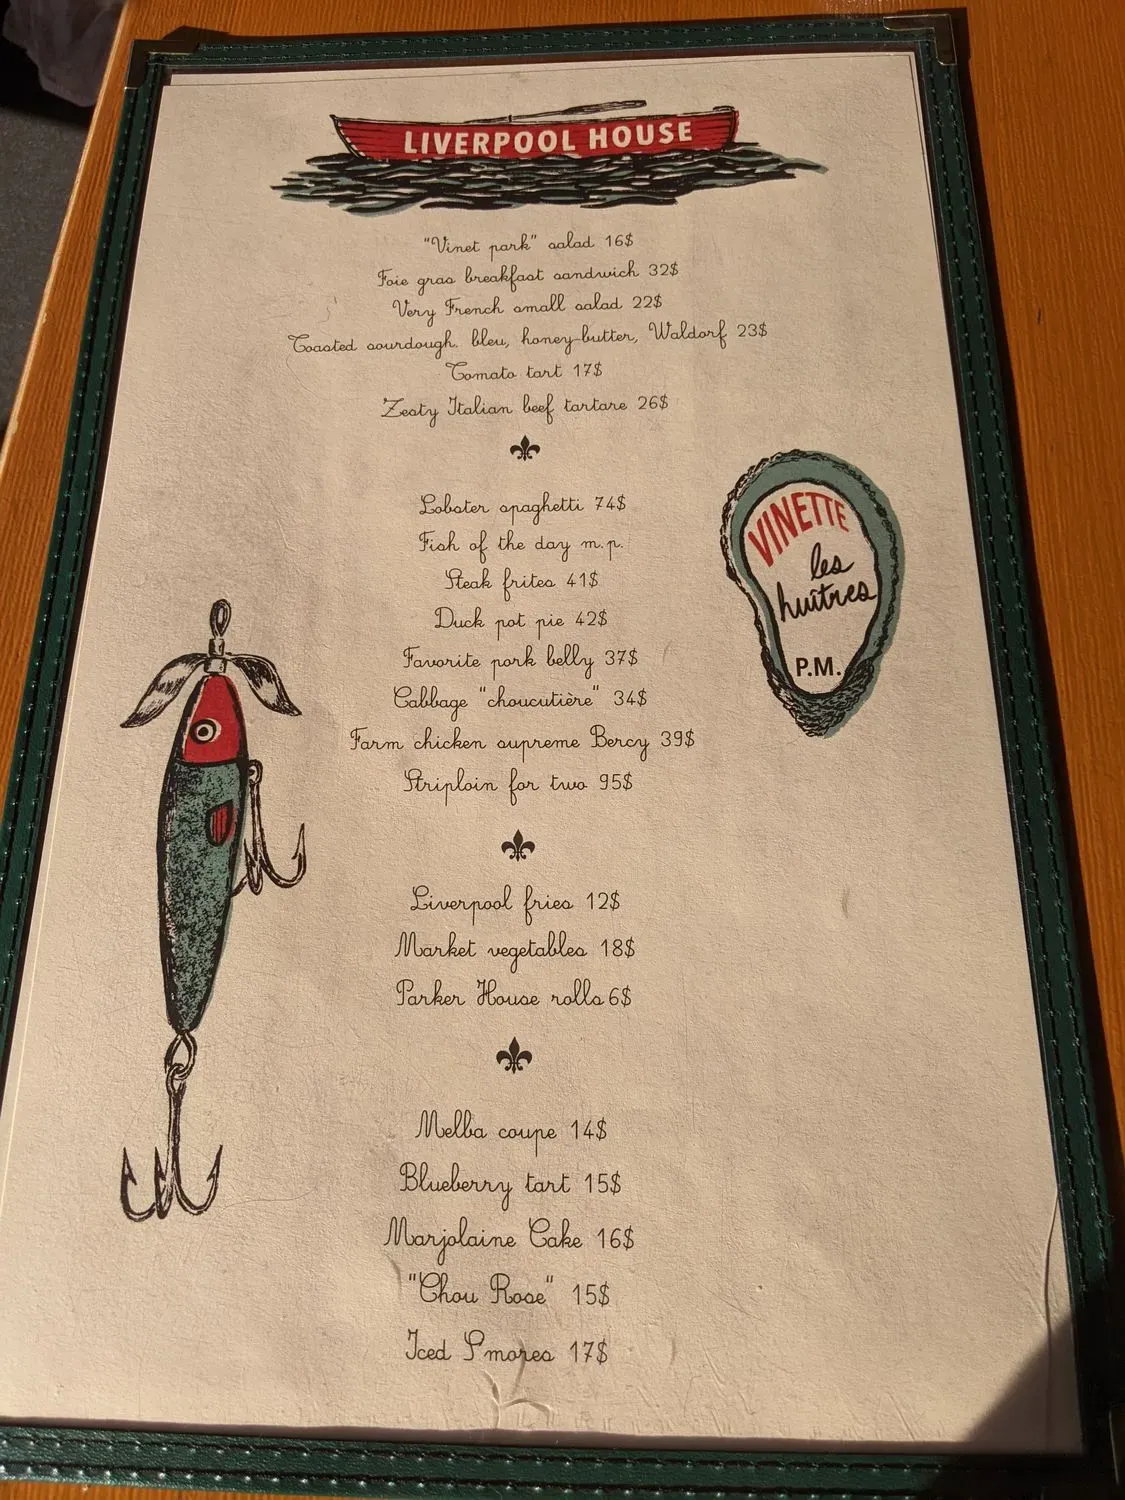 LIVERPOOL HOUSE
"Vinet park" salad 16$
Foie gras breakfast sandwich 32$
Very French small salad 22$
Toasted sourdough. bleu, honey-butter, Waldorf 23$
Tomato tart 17$
Zesty Italian beef tartare 26$
Lobster spaghetti 74$
Fish of the day m.p.
Steak frites 41$
Duck pot pie 42$
Favorite pork belly 37$
Cabbage "choucutière" 34$
Farm chicken supreme Bercy 39$
Striploin for two 95$
VINETTE
les
huîtres
P.M.
Liverpool fries 12$
Market vegetables 18$
Parker House rolls 6$
Melba coupe 14$
Blueberry tart 15$
Marjolaine Cake 16$
"Chou Rose" 15$
Iced S'mores 17$